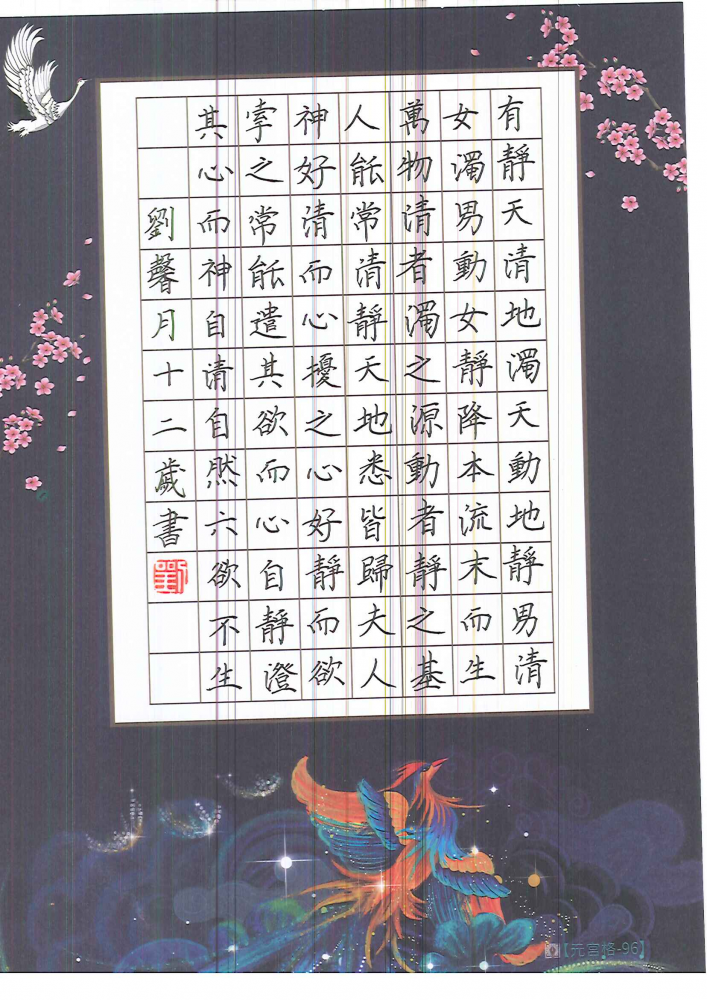 有靜天清地濁天動地靜男清
女濁男動女靜降本流末而生
萬物清者濁之源動者靜之基
人能常清靜天地悉皆歸夫人
神好清而心擾之心好靜而欲
牽之常能遣其欲而心自靜澄
其心而神自清自然六欲不生
劉馨月十二歲書
劉
【元宮格-96】